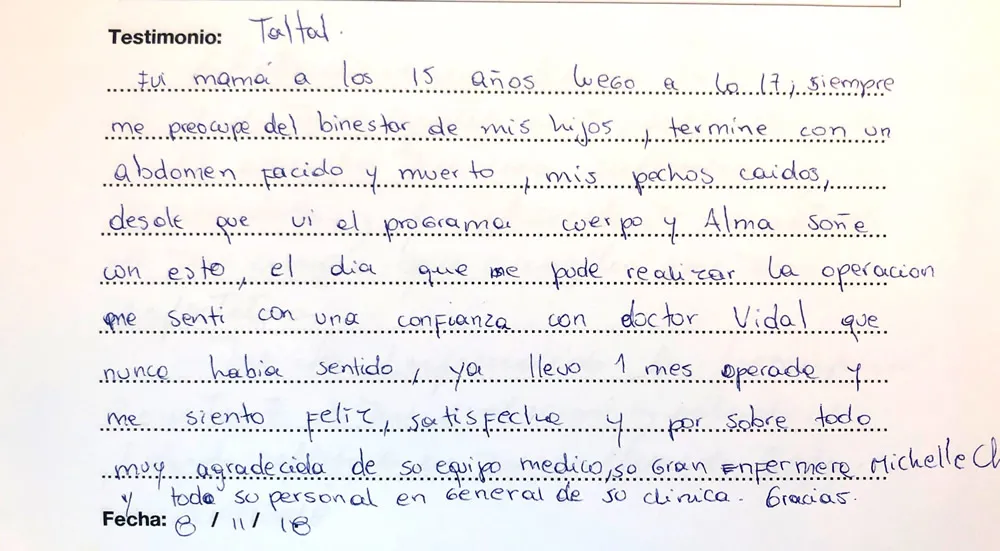 Testimonio: Taltal.
Fui mamá a los 15 años luego a lo 17, siempre
me preocupe del binestar de mis hijos, termine con un
abdomen facido y muerto, mis pechos caidos,
desde que vi el programa cuerpo y Alma soñe
con esto, el dia que me pude realizar la operacion
me senti con una confianza con doctor Vidal que
nunca habia sentido, ya llevo 1 mes operada y
me siento feliz, satisfecha y por sobre todo
muy agradecida de so equipo medico, so Gran Enfermera Michelle Ch
y todo su personal en General de su clinica. Gracias.
Fecha: 8 / 11 / 18